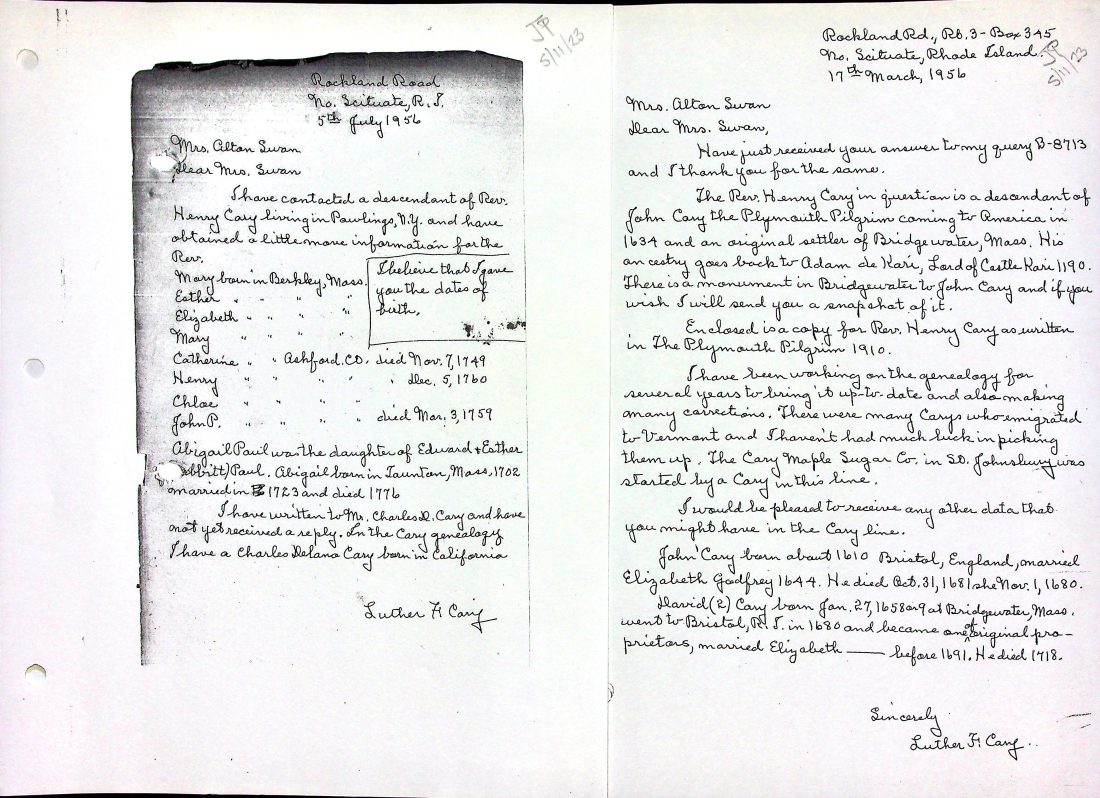 JP
5/11/23
Rockland Road
No. Scituate, R. I.
5th July 1956
Mrs. Alton Swan
Dear Mrs. Swan
I have contacted a descendant of Rev.
Henry Cary living in Pawlings, N.Y. and have
obtained a little more information for the
Rev.
Mary born in Berkley, Mass.
Esther " " " "
Elizabeth " " " "
Mary " " "
Catherine " " Ashford. CO. died Nov. 7, 1749
Henry " " " " Dec. 5, 1760
Chloe " " " "
John P. " " " " died Mar. 3, 1759
I believe that I gave
you the dates of
birth.
Abigail Paul was the daughter of Edward + Esther
bbitt) Paul. Abigail born in Taunton, Mass, 1702
married in 1723 and died 1776
I have written to Mr. Charles D. Cary and have
not yet received a reply. In the Cary genealogy
I have a Charles Delano Cary born in California
Luther F. Cary
Rockland Rd., Rt. 3 - Box 345
No. Scituate, Rhode Island.
17th March, 1956
JP
5/11/23
Mrs. Alton Swan
Dear Mrs. Swan,
Have just received your answer to my query B-8713
and I thank you for the same.
The Rev. Henry Cary in question is a descendant of
John Cary the Plymouth Pilgrim coming to America in
1634 and an original settler of Bridgewater, Mass. His
ancestry goes back to Adam de Kari, Lord of Castle Kari 1190.
There is a monument in Bridgewater to John Cary and if you
wish I will send you a snapshot of it.
Enclosed is a copy for Rev. Henry Cary as written
in The Plymouth Pilgrim 1910.
I have been working on the genealogy for
several years to bring it up-to-date and also making
many corrections. There were many Carys who emigrated
to Vermont and I haven't had much luck in picking
them up. The Cary Maple Sugar Co. in SO. Johnsbury was
started by a Cary in this line.
I would be pleased to receive any other data that
you might have in the Cary line.
John' Cary born about 1610 Bristol, England, married
Elizabeth Godfrey 1644. He died Oct. 31, 1681 she Nov. 1, 1680.
David (2) Cary born Jan. 27, 1658 or 9 at Bridgewater, Mass.
went to Bristol, R. I. in 1680 and became one of original pro-
prietors, married Elizabeth —— before 1691. He died 1718.
Sincerely
Luther F. Cary